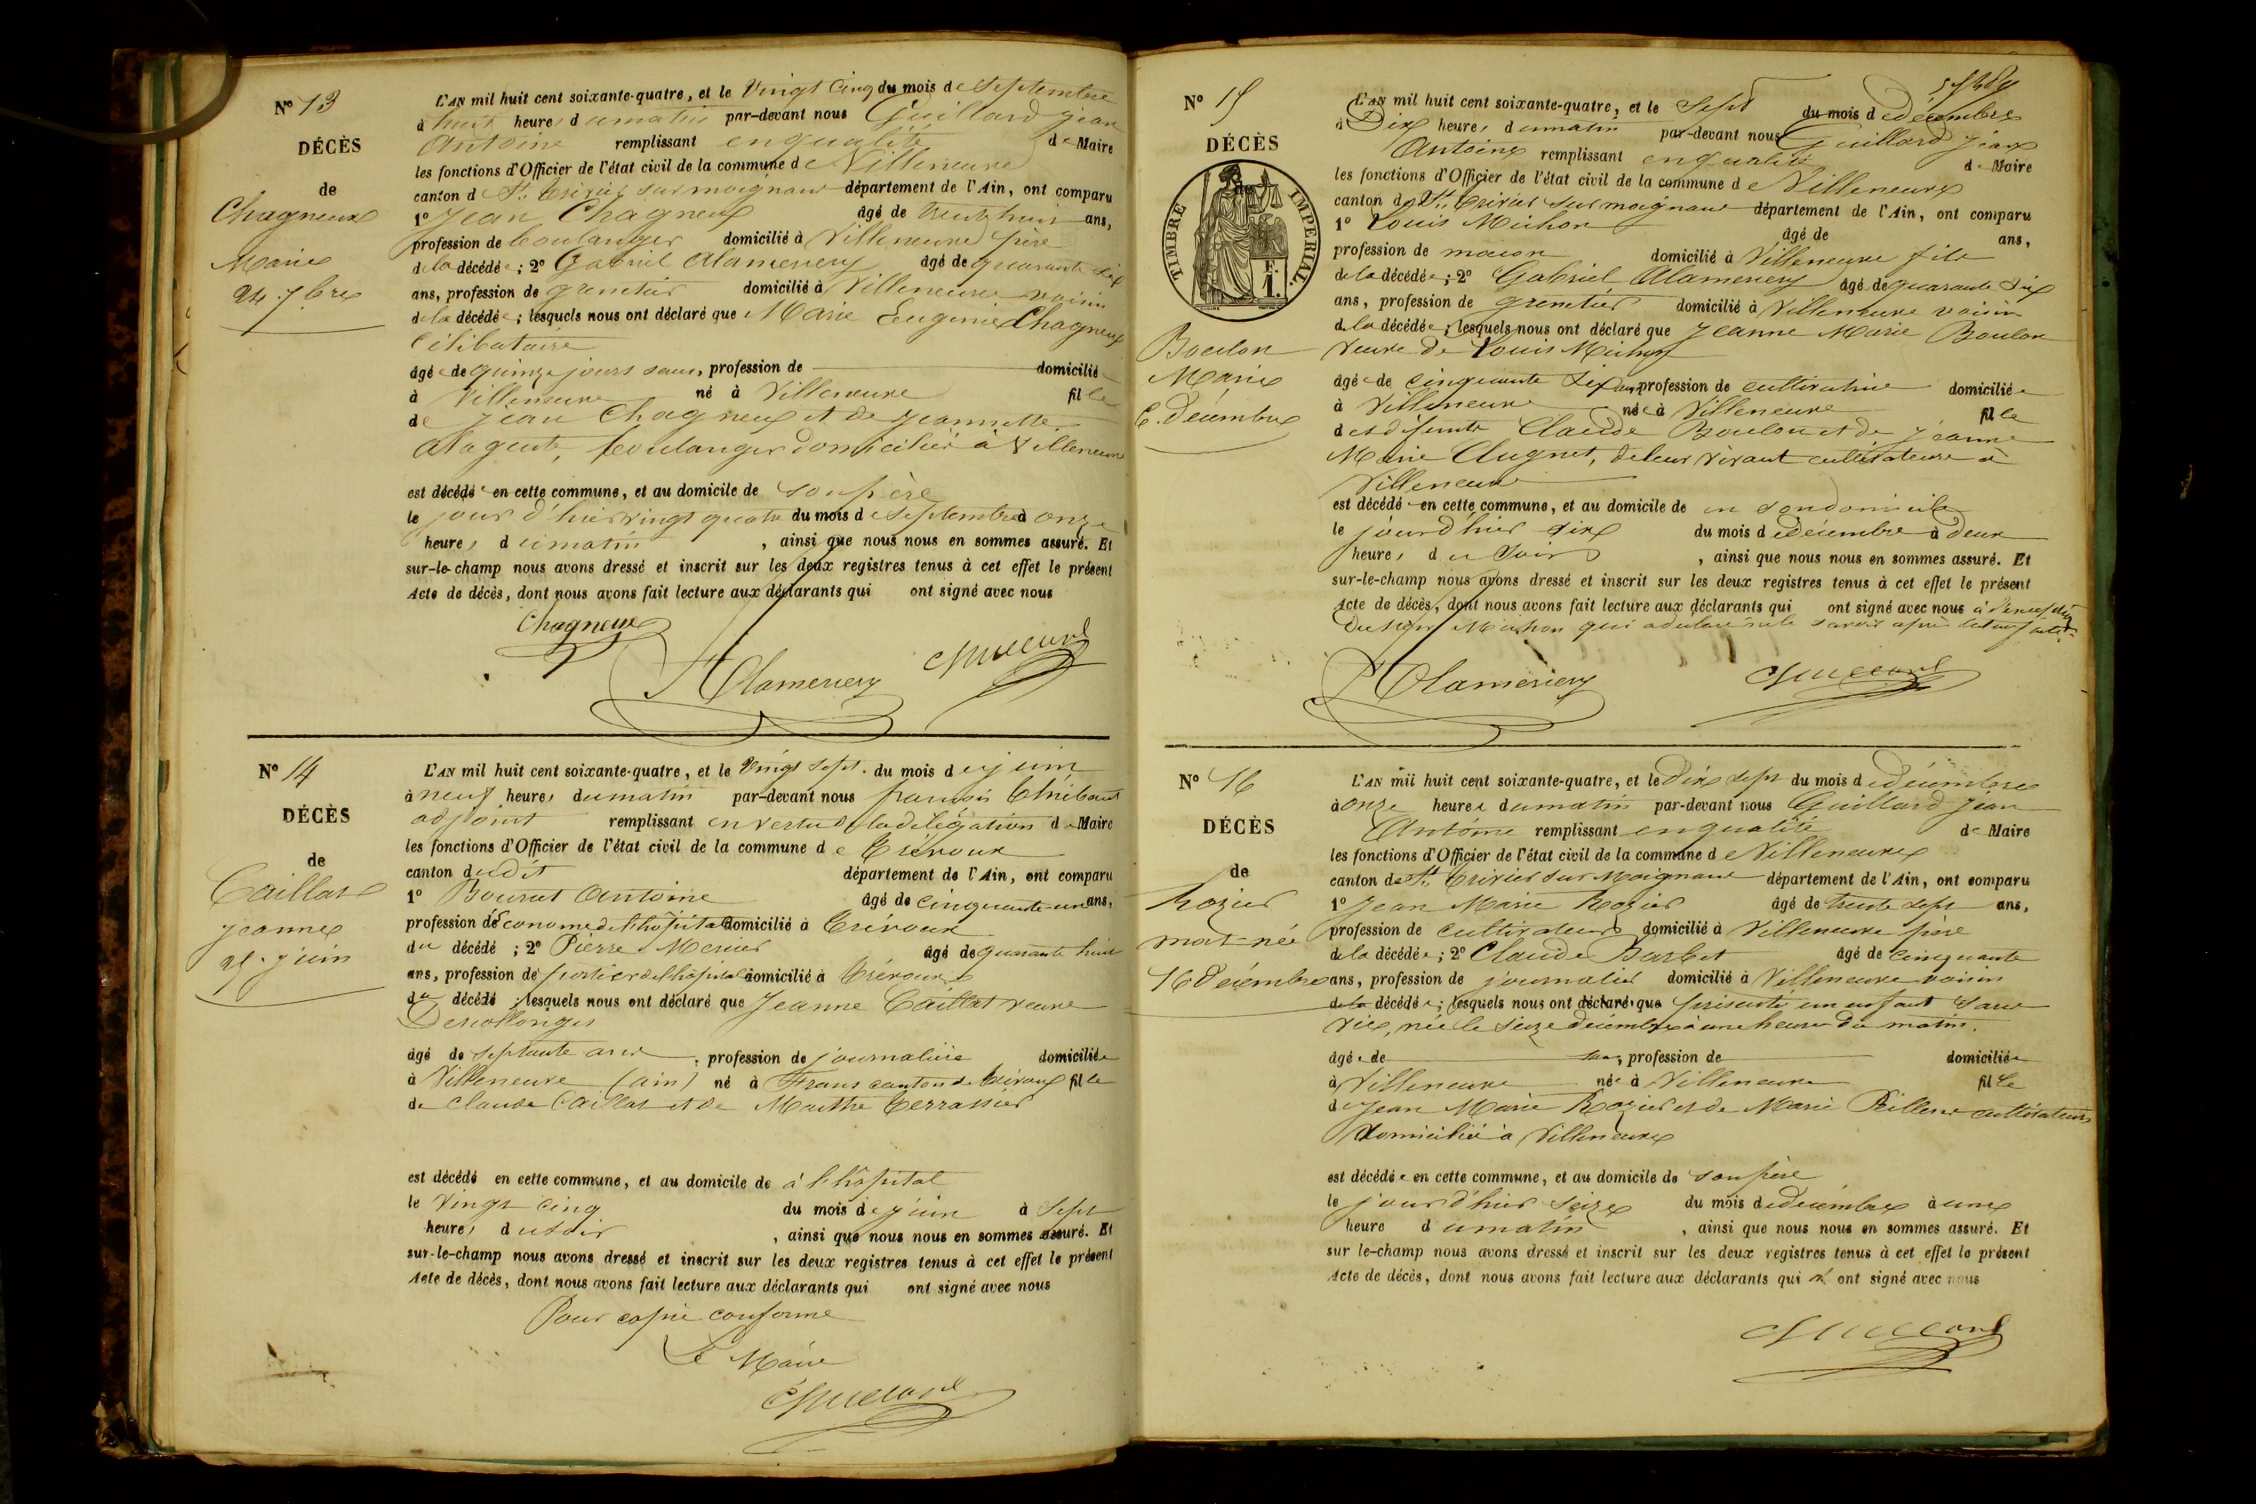 N° 13
DÉCÈS
de
Chagneux
Marie
24 7bre
L'AN mil huit cent soixante-quatre, et le Vingt Cinq du mois de Septembre
à huit heures du matin par-devant nous Guillard Jean
Antoine remplissant en qualité de Maire
les fonctions d'Officier de l'état civil de la commune de Villeneuve
canton de St. Trivier sur moignans département de l'Ain, ont comparu
1° Jean Chagneux âgé de trente huit ans,
profession de boulanger domicilié à Villeneuve père
de la décédée; 2° Gabriel Alamercery âgé de quarante six
ans, profession de grenetier domicilié à Villeneuve voisin
de la décédée; lesquels nous ont déclaré que Marie Eugenie Chagneux
Célibataire
âgée de quinze jours sans, profession de domicilié
à Villeneuve né à Villeneuve fille
de Jean Chagneux et de Jeannette
boulanger domicilié à Villeneuve
est décédée en cette commune, et au domicile de son père
le jour d'hier vingt quatre du mois de Septembre à onze
heures du matin, ainsi que nous nous en sommes assuré. Et
sur-le-champ nous avons dressé et inscrit sur les deux registres tenus à cet effet le présent
Acte de décès, dont nous avons fait lecture aux déclarants qui ont signé avec nous
Chagneux
Alamercery
Guillard
N° 14
DÉCÈS
de
Caillat
Jeanne
25 juin
L'AN mil huit cent soixante-quatre, et le Vingt Sept du mois de juin
à neuf heures du matin par-devant nous françois Thibaut
adjoint remplissant en vertu de la délégation de Maire
les fonctions d'Officier de l'état civil de la commune de Trévoux
canton dudit département de l'Ain, ont comparu
1° Bourret Antoine âgé de cinquante-un ans,
profession d'économe de l'hôpital domicilié à Trévoux
du décédé; 2° Pierre Mercier âgé de quarante huit
ans, profession de portier de l'hôpital domicilié à Trévoux
du décédé; lesquels nous ont déclaré que Jeanne Caillat veuve
Descollonges
âgé de septante ans, profession de journalière domiciliée
à Villeneuve (ain) né à Frans canton de Trévoux fille
de Claude Caillat et de Marthe Terrassier
est décédé en cette commune, et au domicile de à l'hôpital
le Vingt Cinq du mois de juin à Sept
heures du soir, ainsi que nous nous en sommes assuré. Et
sur-le-champ nous avons dressé et inscrit sur les deux registres tenus à cet effet le présent
Acte de décès, dont nous avons fait lecture aux déclarants qui ont signé avec nous
Pour copie conforme
Le Maire
Guillard
N° 15
DÉCÈS
TIMBRE IMPERIAL.
Boulon
Marie
6 Décembre
L'AN mil huit cent soixante-quatre, et le Sept du mois de décembre
à Dix heures du matin par-devant nous Guillard Jean
Antoine remplissant en qualité de Maire
les fonctions d'Officier de l'état civil de la commune de Villeneuve
canton de St. Trivier sur moignans département de l'Ain, ont comparu
1° Louis Michon âgé de ans,
profession de maçon domicilié à Villeneuve fils
de la décédée; 2° Gabriel Alamercery âgé de quarante Six
ans, profession de grenetier domicilié à Villeneuve voisin
de la décédée; lesquels nous ont déclaré que Jeanne Marie Boulon
veuve de Louis Michon
âgée de cinquante Six ans, profession de cultivatrice domiciliée
à Villeneuve née à Villeneuve fille
de défunts Claude Boulon et de Jeanne
Marie Augnet, de leur vivant cultivateurs à
Villeneuve
est décédée en cette commune, et au domicile de en son domicile
le jour d'hier six du mois de décembre à deux
heures du Soir, ainsi que nous nous en sommes assuré. Et
sur-le-champ nous avons dressé et inscrit sur les deux registres tenus à cet effet le présent
Acte de décès, dont nous avons fait lecture aux déclarants qui ont signé avec nous
Michon qui a déclaré ne le savoir après lecture faite.
Alamercery
Guillard
N° 16
DÉCÈS
de
Rozier
mort-née
16 Décembre
L'AN mil huit cent soixante-quatre, et le Dix Sept du mois de décembre
à onze heures du matin par-devant nous Guillard Jean
Antoine remplissant en qualité de Maire
les fonctions d'Officier de l'état civil de la commune de Villeneuve
canton de St. Trivier sur Moignans département de l'Ain, ont comparu
1° Jean Marie Rozier âgé de trente sept ans,
profession de cultivateur domicilié à Villeneuve père
de la décédée; 2° Claude Barbet âgé de cinquante
ans, profession de journalier domicilié à Villeneuve voisin
de la décédée; lesquels nous ont déclaré que présenté un enfant Sans
vie, née le seize décembre à une heure du matin.
âgée de ans, profession de domiciliée
à Villeneuve née à Villeneuve fille
de Jean Marie Rozier et de Marie cultivateurs
domiciliés à Villeneuve
est décédée en cette commune, et au domicile de son père
le jour d'hier Seize du mois de décembre à une
heure du matin, ainsi que nous nous en sommes assuré. Et
sur le-champ nous avons dressé et inscrit sur les deux registres tenus à cet effet le présent
Acte de décès, dont nous avons fait lecture aux déclarants qui n'ont signé avec nous
Guillard